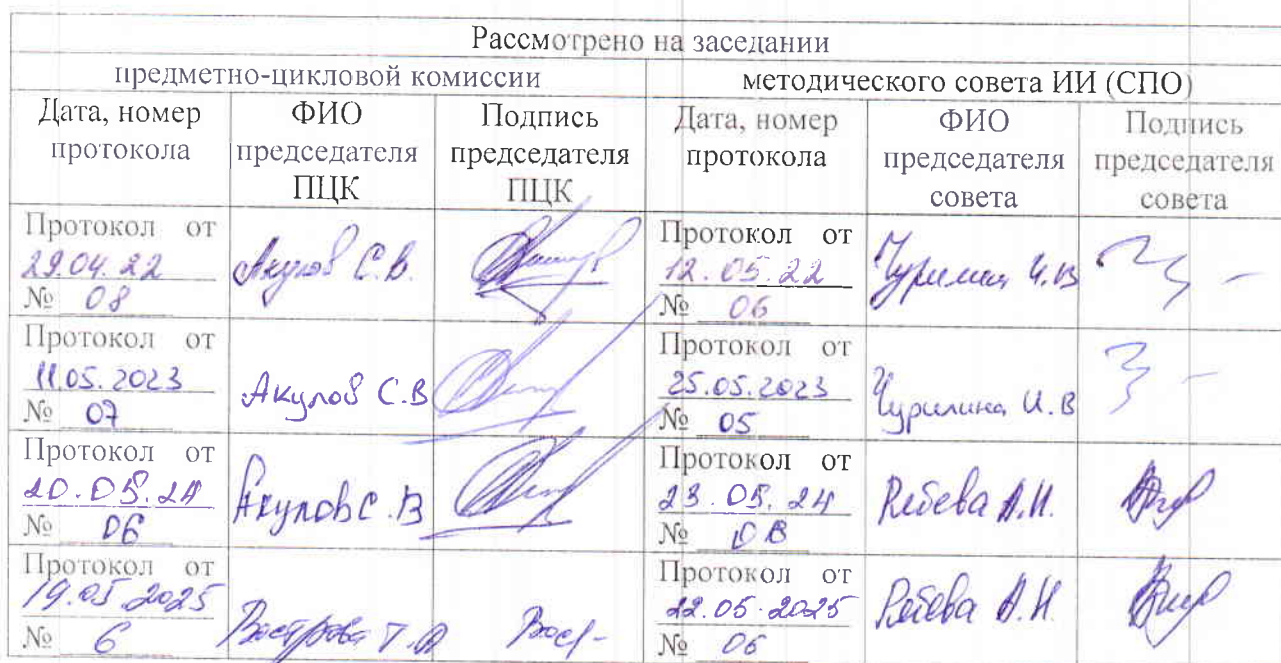 Рассмотрено на заседании
предметно-цикловой комиссии
методического совета ИИ (СПО)
Дата, номер протокола
ФИО председателя ПЦК
Подпись председателя ПЦК
Дата, номер протокола
ФИО председателя совета
Подпись председателя совета
Протокол от
29.04.22
№ 08
Акулов С.В.
Протокол от
12.05.22
№ 06
Протокол от
11.05.2023
№ 07
Акулов С.В
Протокол от
25.05.2023
№ 05
Чурилина И.В
Протокол от
20.05.24
№ 06
Акулов С.В
Протокол от
23.05.24
№
А.Н.
Протокол от
19.05.2025
№ 6
Протокол от
22.05.2025
№ 06
А.Н.